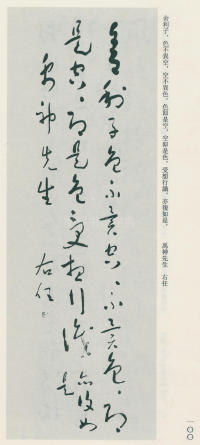 舍利子，色不異空，空不異色，色即是空，空即是色，受想行識，亦復如是，　禹神先生　右任
舍利子色不異空、不異色、即
是空、即是色受想行識亦復如
是
禹神先生
右任
一〇〇